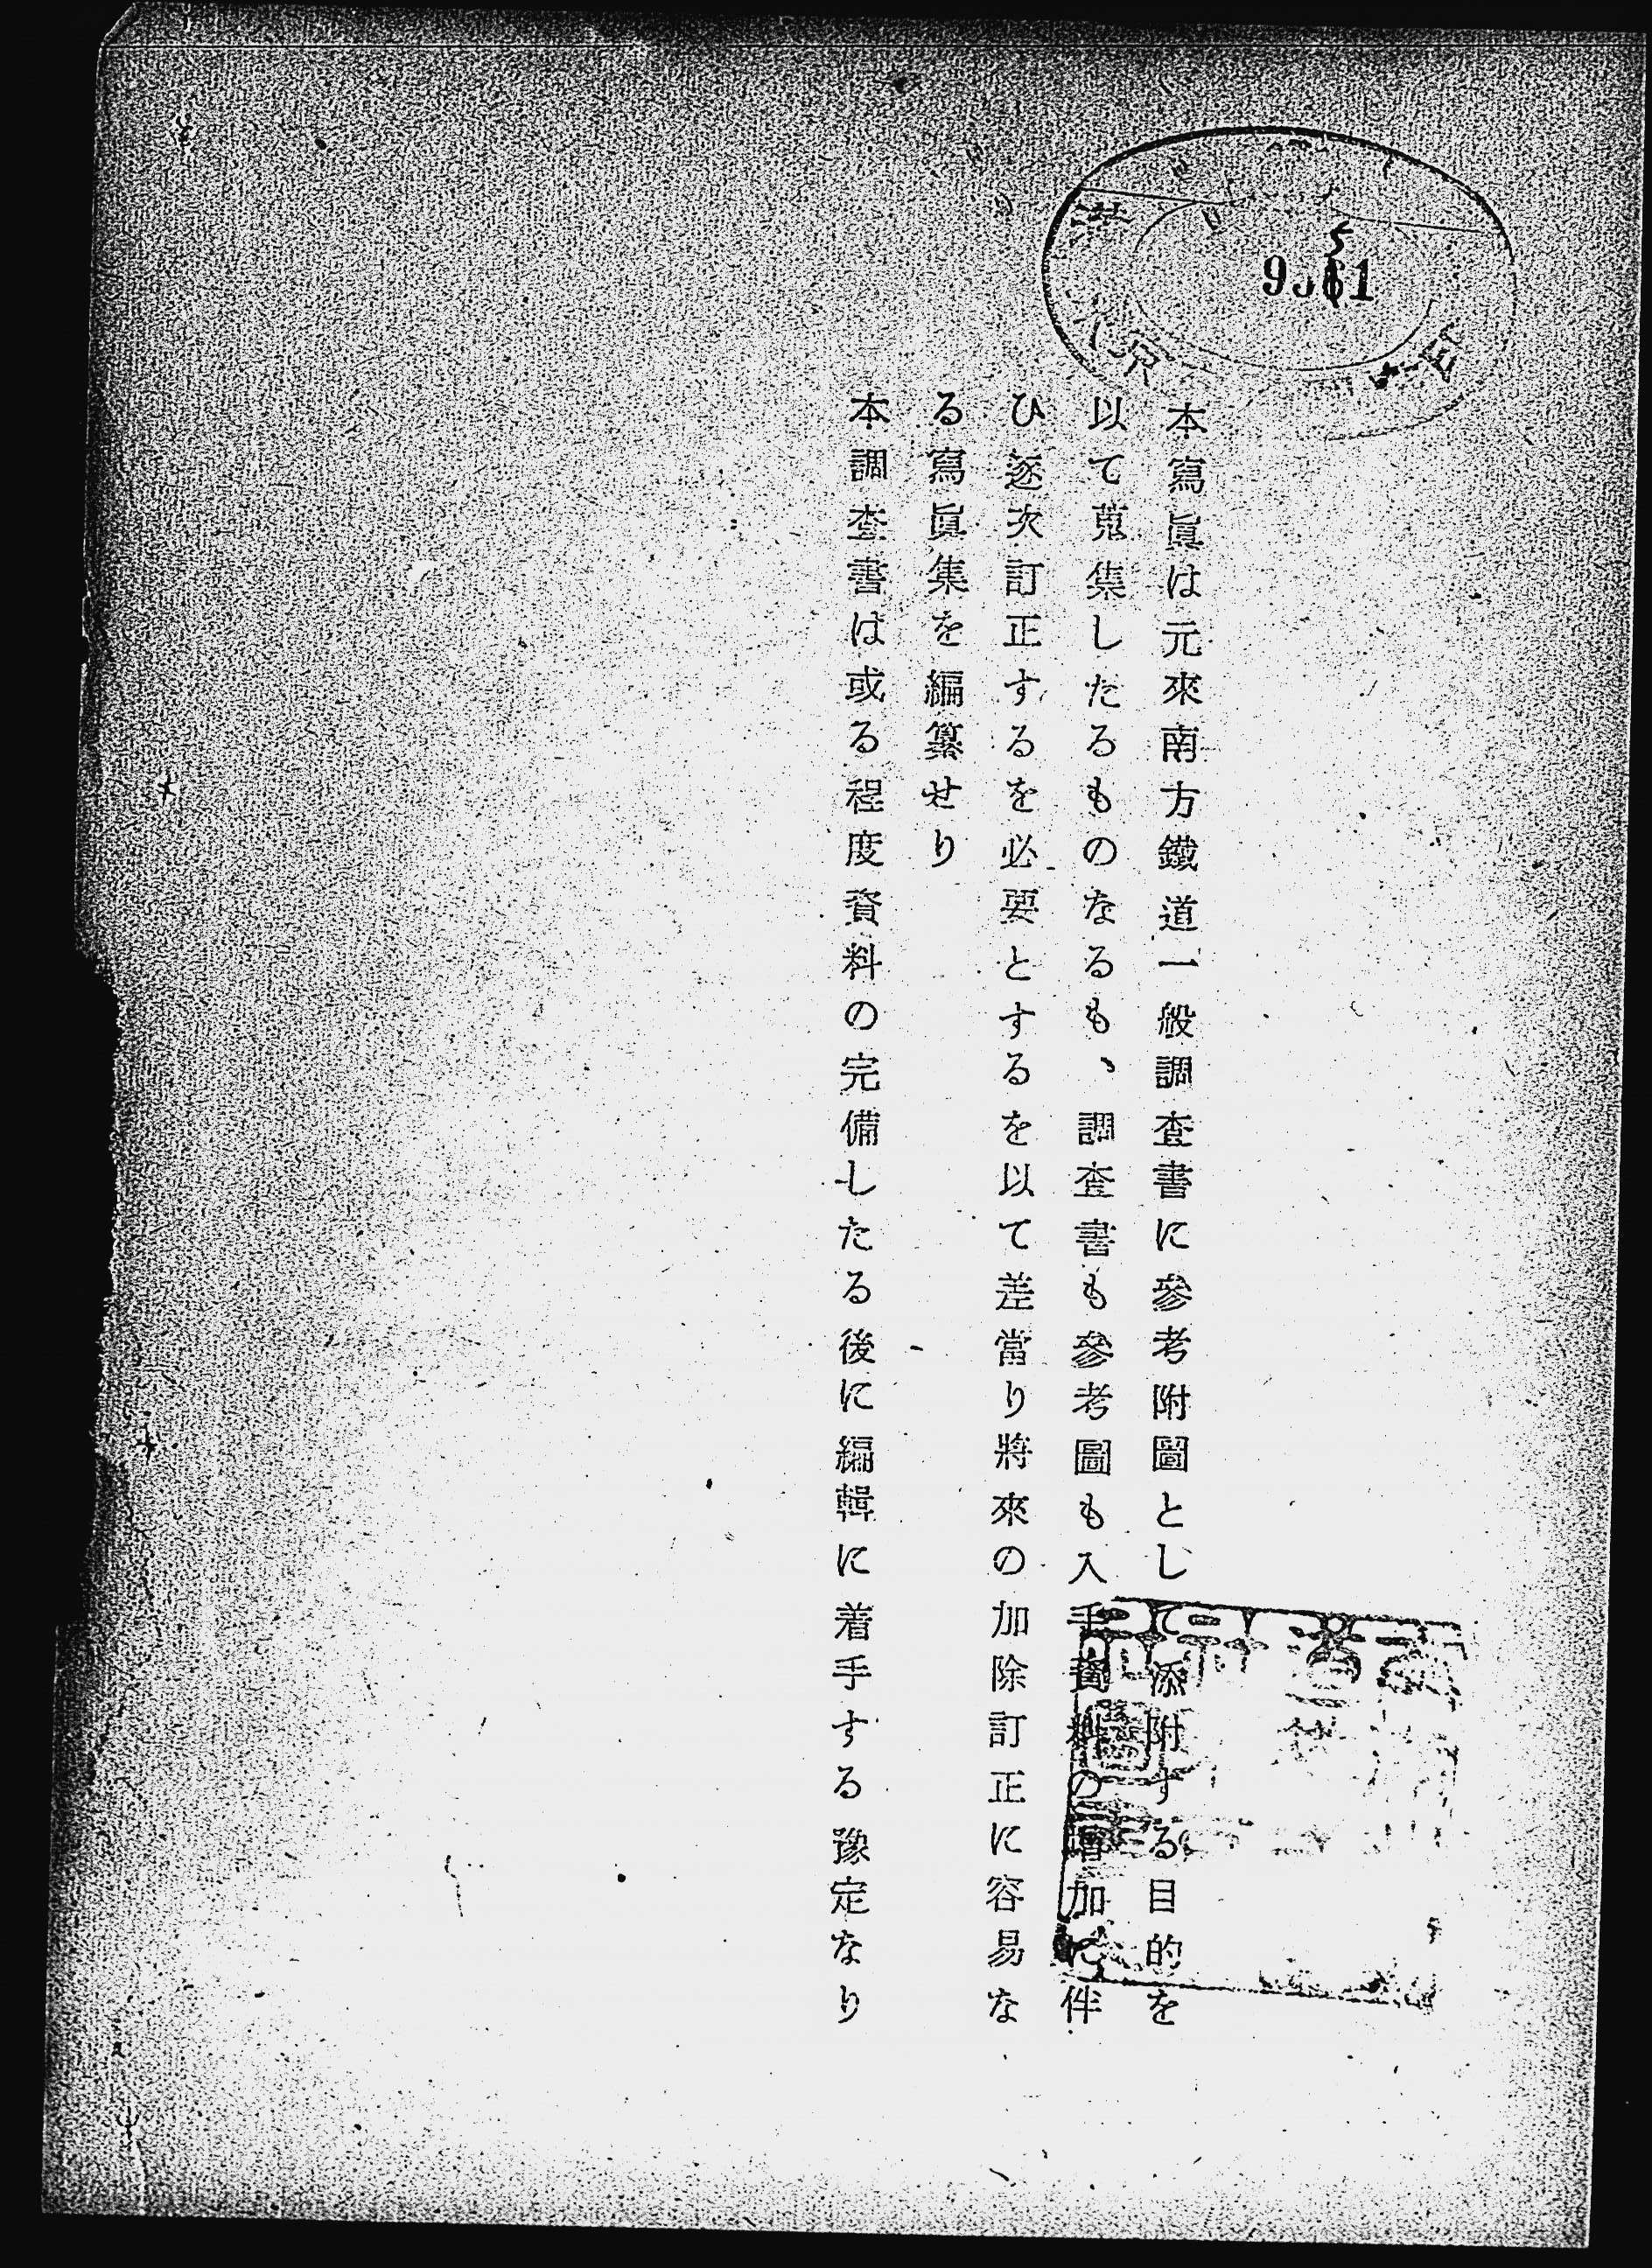 本寫眞は元來南方鐵道一般調査書に參考附圖として添附する目的を
以て蒐集したるものなるも、調査書も參考圖も入手資料の增加に伴
ひ逐次訂正するを必要とするを以て差當り將來の加除訂正に容易な
る寫眞集を編纂せり
本調査書は或る程度資料の完備したる後に編輯に着手する豫定なり